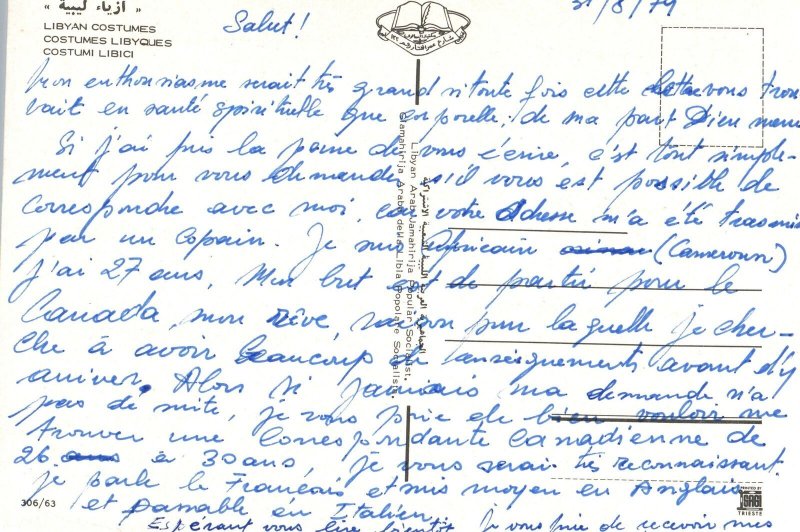 « أزياء ليبية »
LIBYAN COSTUMES
COSTUMES LIBYQUES
COSTUMI LIBICI
31/8/79
Salut!
Mon enthousiasme serait très grand si toute fois cette lettre vous trou
vait en santé spirituelle que corporelle, de ma part Dieu merci
Si j'ai pris la peine de vous écrire, c'est tout simple-
ment pour vous demander s'il vous est possible de
correspondre avec moi, car votre adresse m'a été trasmis
par un copain. Je suis Africain (Cameroun)
J'ai 27 ans, Mon but est de partir pour le
Canada, mon rêve, raison pour laquelle je cher-
che à avoir beaucoup de renseignements avant d'y
arriver. Alors si jamais ma demande n'a
pas de suite, je vous prie de bien vouloir me
trouver une Correspondante Canadienne de
26 à 30 ans, je vous serai très reconnaissant.
je parle le Français et mis moyen en Anglais
et passable en Italien,
Espérant vous lire bientôt Je vous prie de recevoir mes
الجماهيرية العربية الليبية الشعبية الاشتراكية
Libyan Arab Jamahirija Popular Socialist.
Giamahirija Araba della Libia Popolare Socialista
306/63
PRINTED BY
TRIESTE